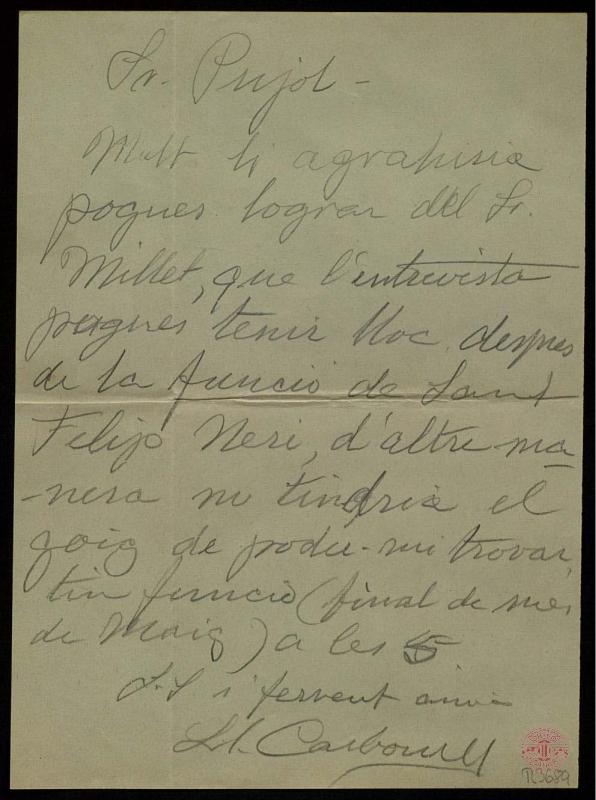 Sr. Pujol -
Molt li agrahiria
pogues lograr del Sr.
Millet, que l'entrevista
pogues tenir lloc despres
de la funció de Sant
Felip Neri, d'altre ma-
-nera no tindria el
goig de poder-mi trovar,
tin funció (final de mes
de Maig) a les 5
S. S i fervent amic
Ll. Carbonell
TL3689